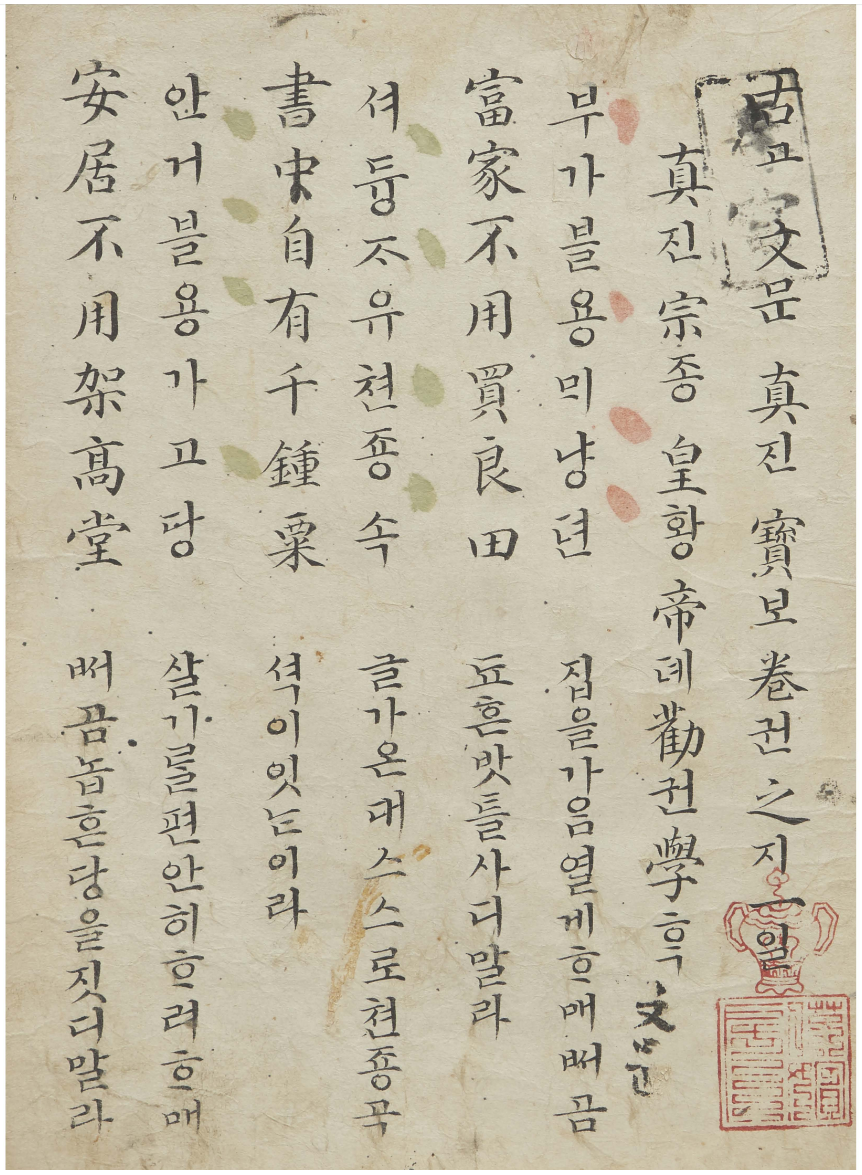 古고文문 真진 寶보卷권之지一일
真진宗종皇황帝뎨勸권學흑文문
부가블용믜냥뎐 집을가음열게흐매ᄡᅥ곰
富家不用買良田 됴흔밧틀사디말라
셔듕즈유쳔죵속 글가온대스스로쳔죵곡
書中自有千鍾粟 셕이잇는이라
안거블용가고당 살기를편안히흐려흐매
安居不用架髙堂 ᄡᅥ곰놉흔당을짓디말라